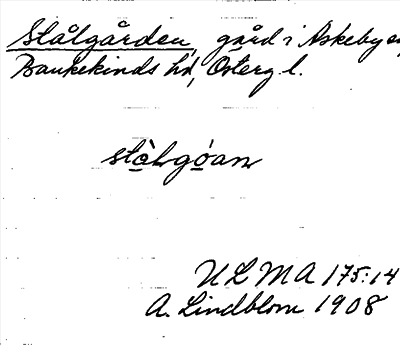 Stålgården, gård i Askeby sn,
Bankekinds hd, Österg l.
stålgọan
ULMA 175:14
A. Lindblom 1908